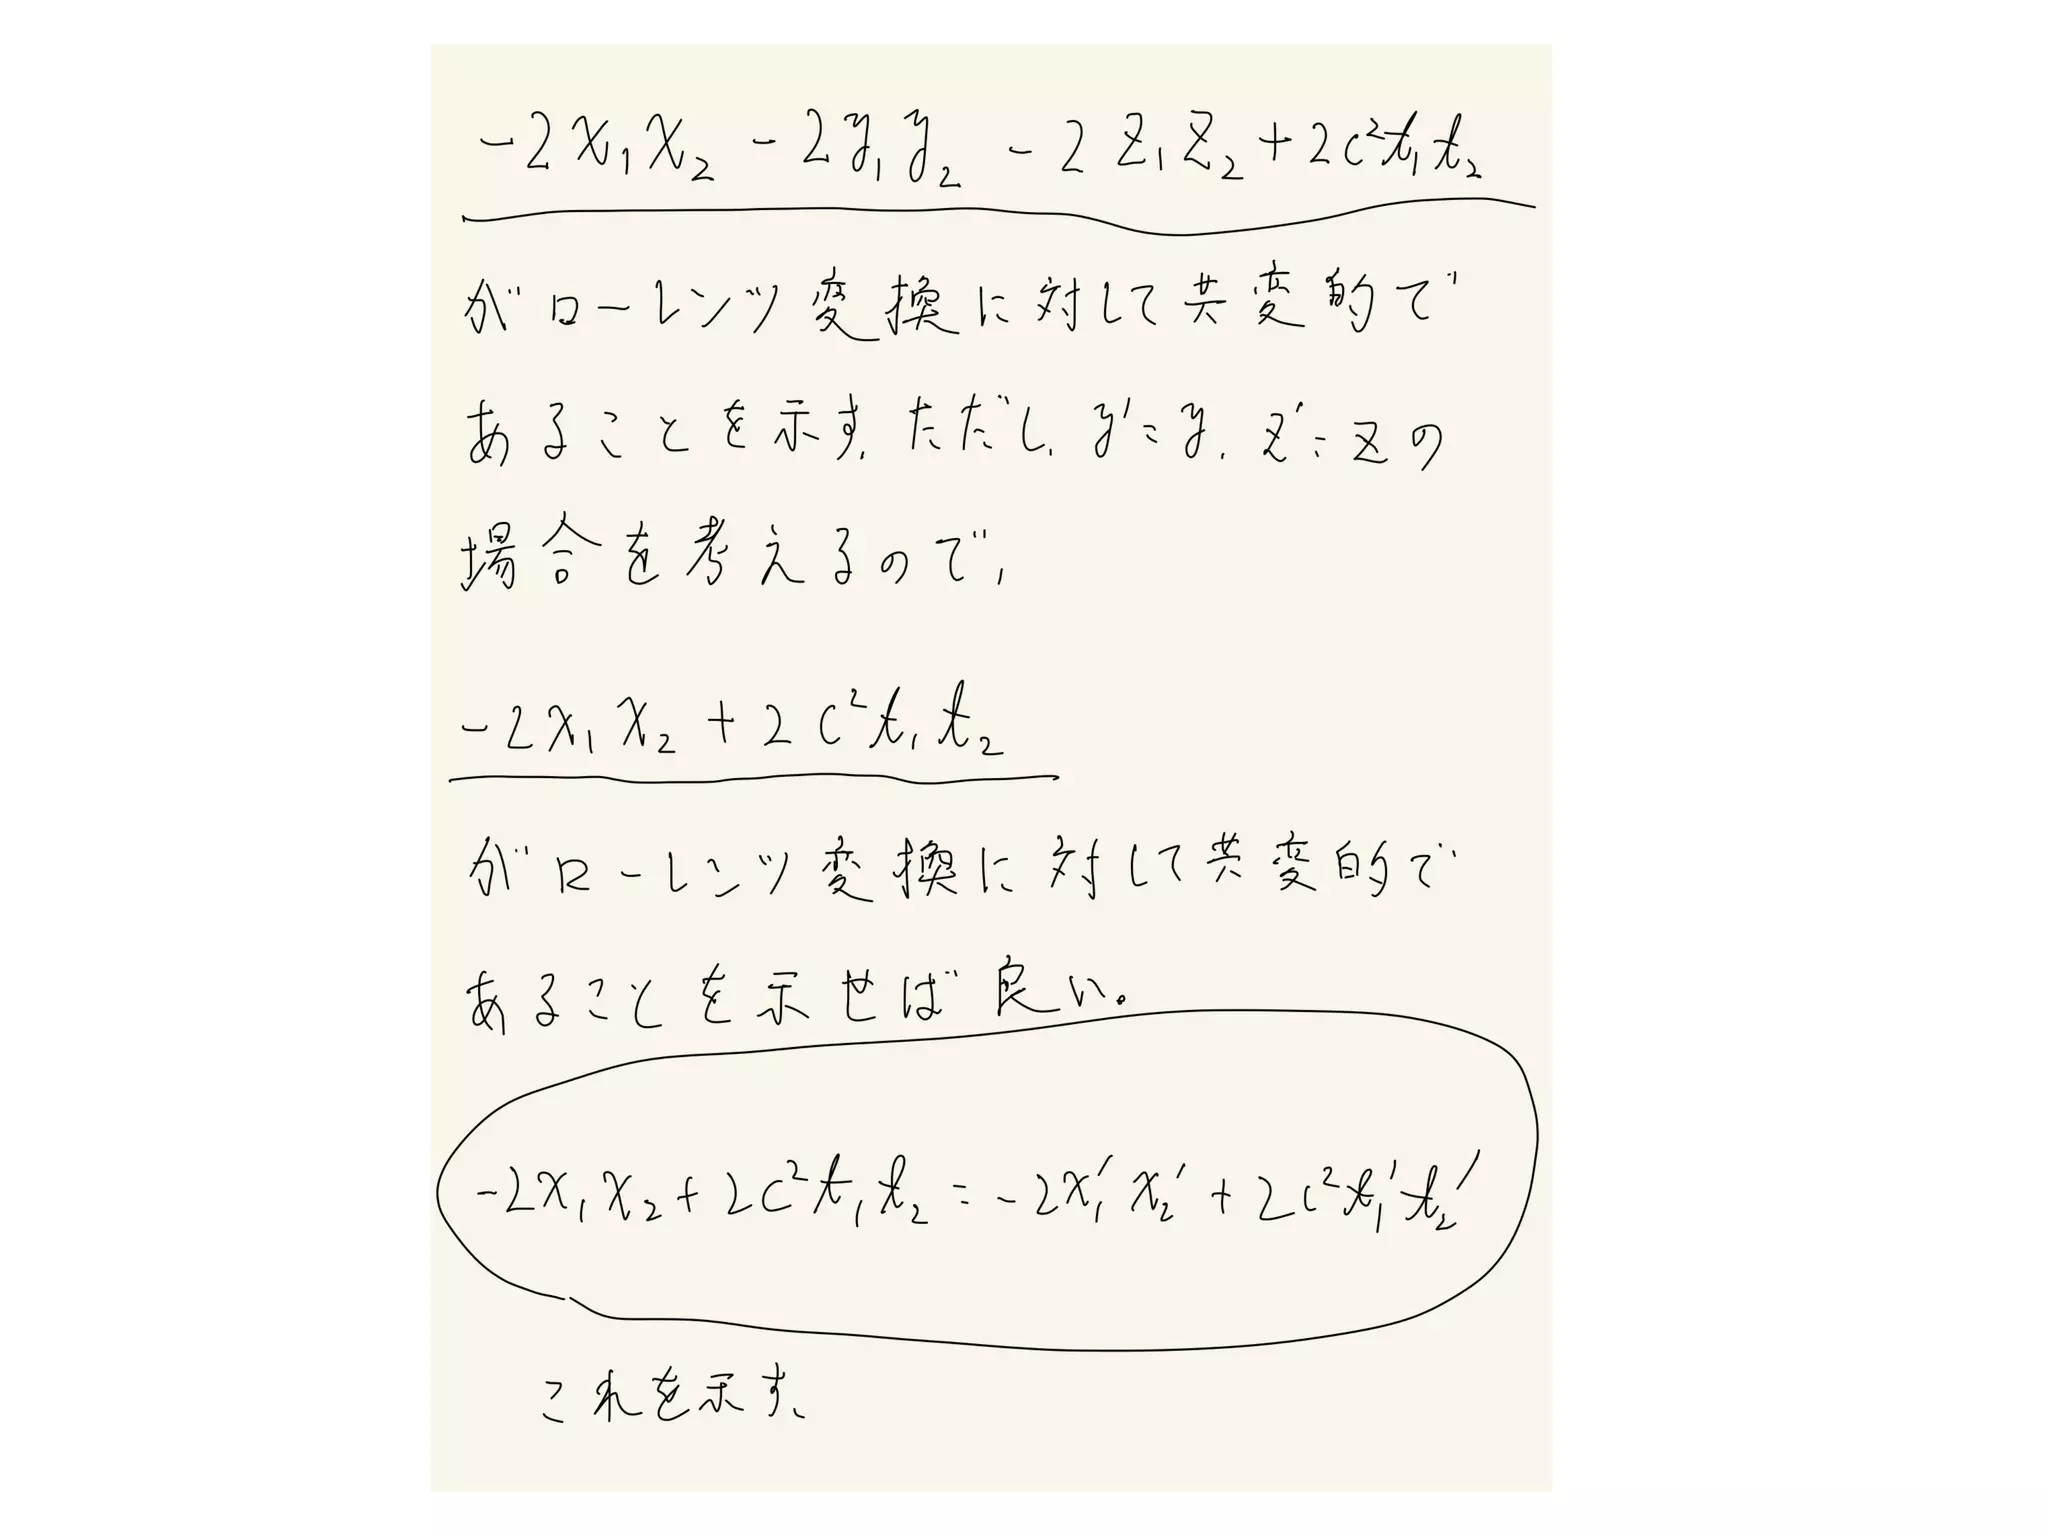 -2x₁x₂ - 2y₁y₂ - 2z₁z₂ + 2c²t₁t₂
がローレンツ変換に対して共変的で
あることを示す. ただし, y'=y, z'=zの
場合を考えるので,
-2x₁x₂ + 2c²t₁t₂
がローレンツ変換に対して共変的で
あることを示せば良い。
-2x₁x₂ + 2c²t₁t₂ = -2x₁'x₂' + 2c²t₁'t₂'
これを示す、